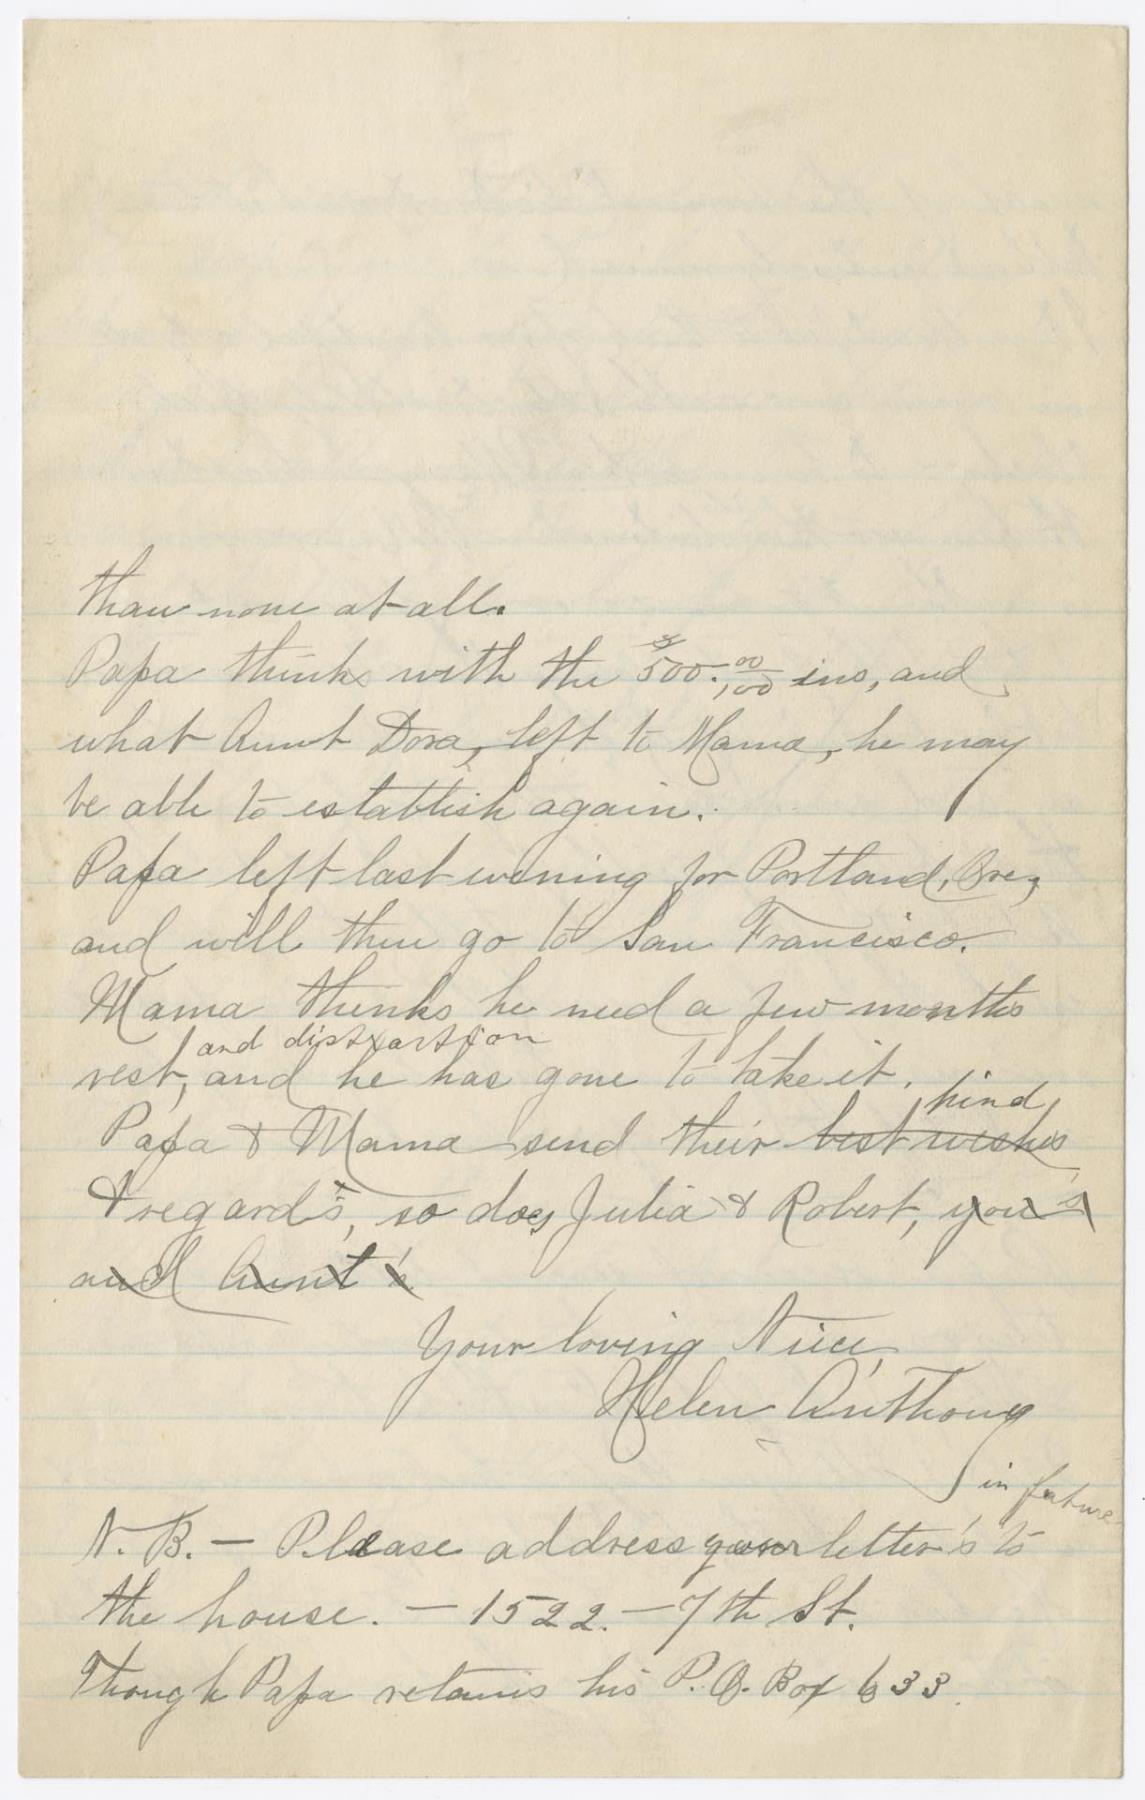 than none at all.
Papa thinks with the $500.00/100 ins, and
what Aunt Dora, left to Mama, he may
be able to establish again.
Papa left last evening for Portland, Ore,
and will then go to San Francisco.
Mama thinks he need a few months
and distraction
rest, and he has gone to take it.
kind
Papa & Mama send their best wishes
& regard's, so does Julia & Robert, you's
and Aunt's
Your loving Niece,
Helen Anthony
in future
N. B. — Please address your letter's to
the house. — 1522. — 7th St.
Though Papa retains his P. O. Box 633.